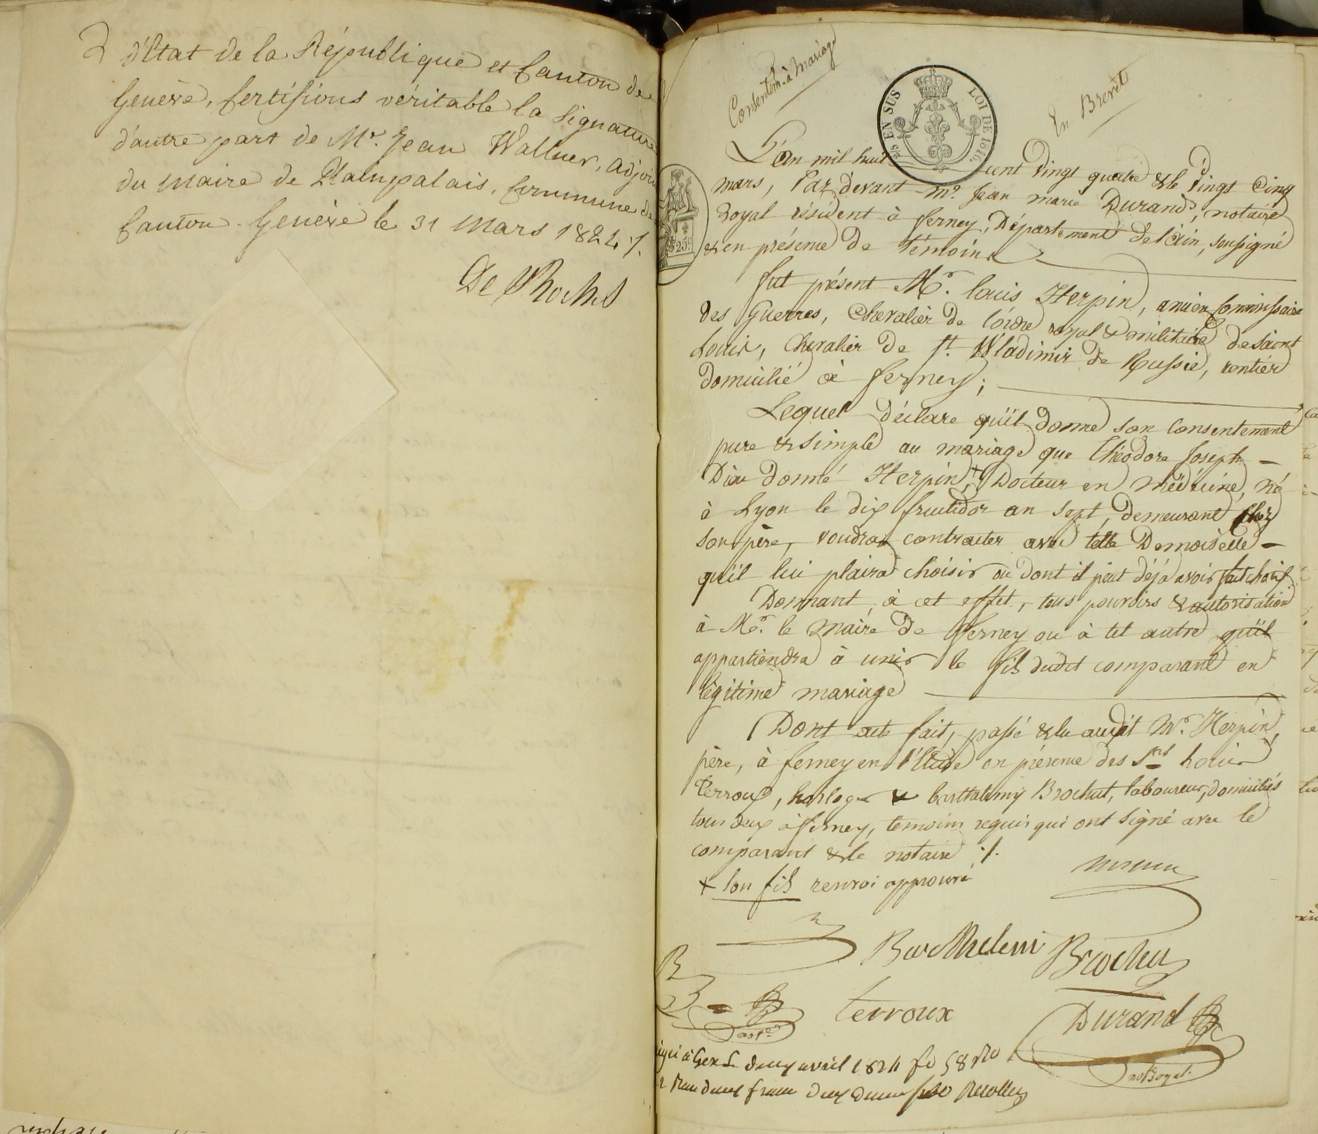 d'Etat de la République et Canton de
Genève, Certifions véritable la Signature
d'autre part de Mr. Jean Wallner, adjoin
du Maire de Plainpalais, Commune de
Canton. Genève le 31 Mars 1824
De Roches
Consentem. à Mariage
En Brevet
EN SUS LOI DE 1816.
25c
L'an mil huit cent vingt quatre & le vingt cinq
mars, Par devant Me. Jean marie Durand, notaire
royal résident à Ferney, Département de l'ain, soussigné
& en présence de témoins
fut présent Mr. louis Herpin, ancien Commissaire
des Guerres, Chevalier de l'ordre royal & militaire de Saint
Louis, Chevalier de St. Wladimir de Russie, rentier
domicilié à ferney;
Lequel déclare qu'il donne son Consentement
pure & simple au mariage que théodore Joseph
Dieu donné Herpin, + Docteur en Médecine, né
à Lyon le dix fructidor an sept, demeurant chez
son père, voudra contracter avec telle Demoiselle
qu'il lui plaira choisir ou dont il peut déjà avoir fait choix.
Donnant à cet effet, tous pouvoirs & autorisation
à Mr. le Maire de Ferney ou à tel autre qu'il
appartiendra à unir le fils dudit comparant en
légitime mariage
Dont acte fait, passé & lu audit Mr. Herpin,
père, à ferney en l'Etude en présence des Srs louis
Terroux, horloger & barthelemy Brochut, laboureur, domiciliés
tous deux à ferney, temoins requis qui ont signé avec le
comparant & le notaire ./.
+ son fils renvoi approuvé
Barthelemi Brochu
terroux
Durand
à Gex le deux avril 1824 fo 58 ro
deux francs